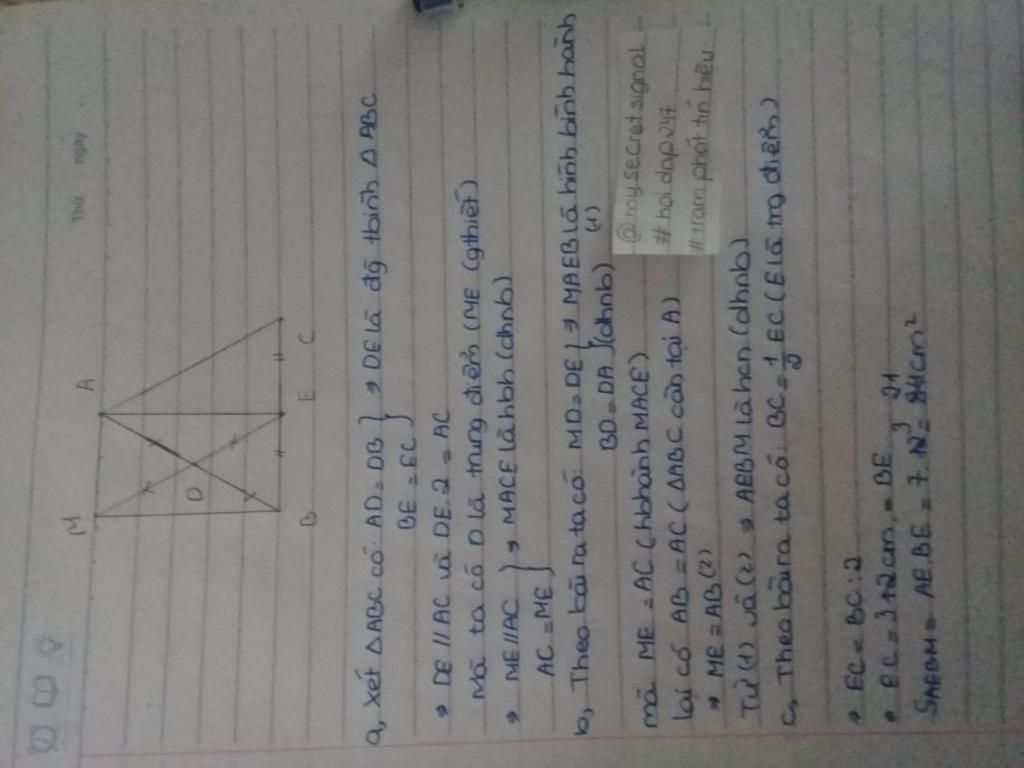 Thứ ngày
M A
D
B E C
a, Xét Δ ABC có: AD = DB } → DE là đg tbình Δ ABC
BE = EC
→ DE // AC và DE.2 = AC
Mà ta có D là trung điểm (ME (gthiết)
→ ME // AC } → MACE là hbh (dhnb)
AC = ME
b, Theo bài ra ta có: MD = DE } → MAEB là hình bình hành
BD = DA (dhnb) (1)
mà ME = AC (hbhành MACE)
lại có AB = AC (ΔABC cân tại A)
→ ME = AB (2)
Từ (1) và (2) → AEBM là hcn (dhnb)
c, Theo bài ra ta có: BC = 1/2 EC (E là trg điểm)
→ EC = BC : 2
EC = 3 cm = BE
SAEBM = AE.BE = 7. 3 = 21 cm²
@mysecretsignal
#hoidap247
#trạm phát tín hiệu